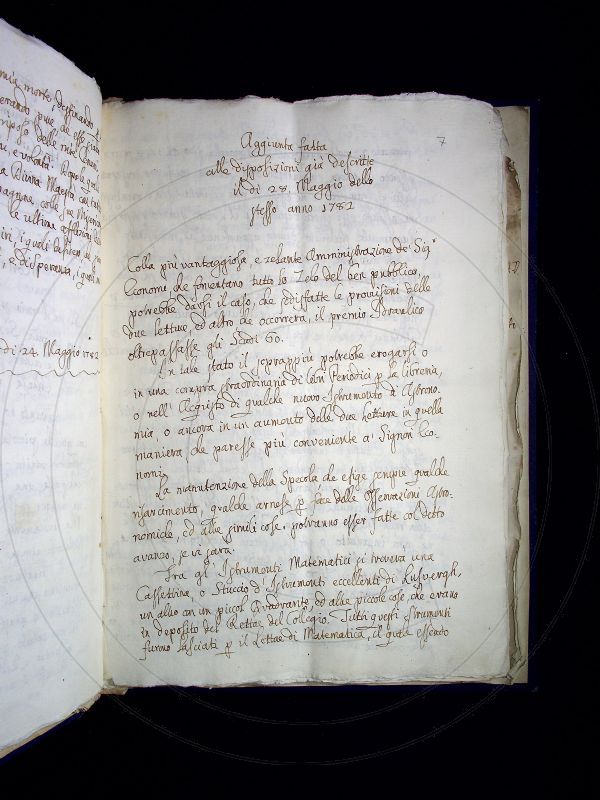 nia morte, destinando
di 24. Maggio 1782
7
Aggiunta fatta
alle disposizioni già descritte
il dì 28. Maggio dello
stesso anno 1782
Colla più vantaggiosa, e zelante Amministrazione de' Sigri
Economi, che fomentano tutto lo Zelo del ben pubblico,
potrebbe darsi il caso, che sodisfatte le provisioni delle
due letture, ed altro che occorrerà, il premio Idraulico
oltrepassasse gli Scudi 60.
In tale stato il soprappiù potrebbe erogarsi o
in una compra straordinaria di libri Periodici p la libreria,
o nell'Acquisto di qualche nuovo Istrumento d'Astrono-
mia, o ancora in un aumento delle due letture in quella
maniera che paresse più conveniente a' Signori Eco-
nomi.
La manutenzione della Specola che esige sempre qualche
risarcimento, qualche arnese p fare delle Osservazioni Astro-
nomiche, ed altre simili cose, potranno esser fatte col detto
avanzo, se vi sarà.
Fra gl'Istrumenti Matematici si troverà una
Cassettina, o Stuccio d'Istrumenti eccellenti di Lusvergh,
un altro con un piccol Quadrante, ed altre piccole cose, che erano
in deposito del Rettore del Collegio. Tutti questi strumenti
furono lasciati p il Lettore di Matematica, il quale essendo